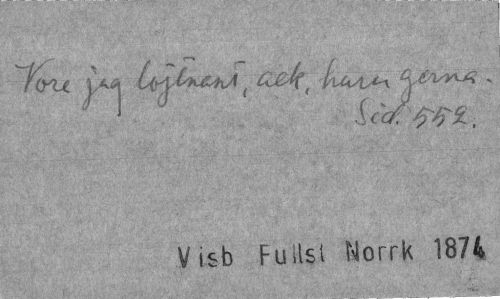 Vore jag löjtnant, ack, huru gerna.
Sid. 552.
Visb Fullst Norrk 1874